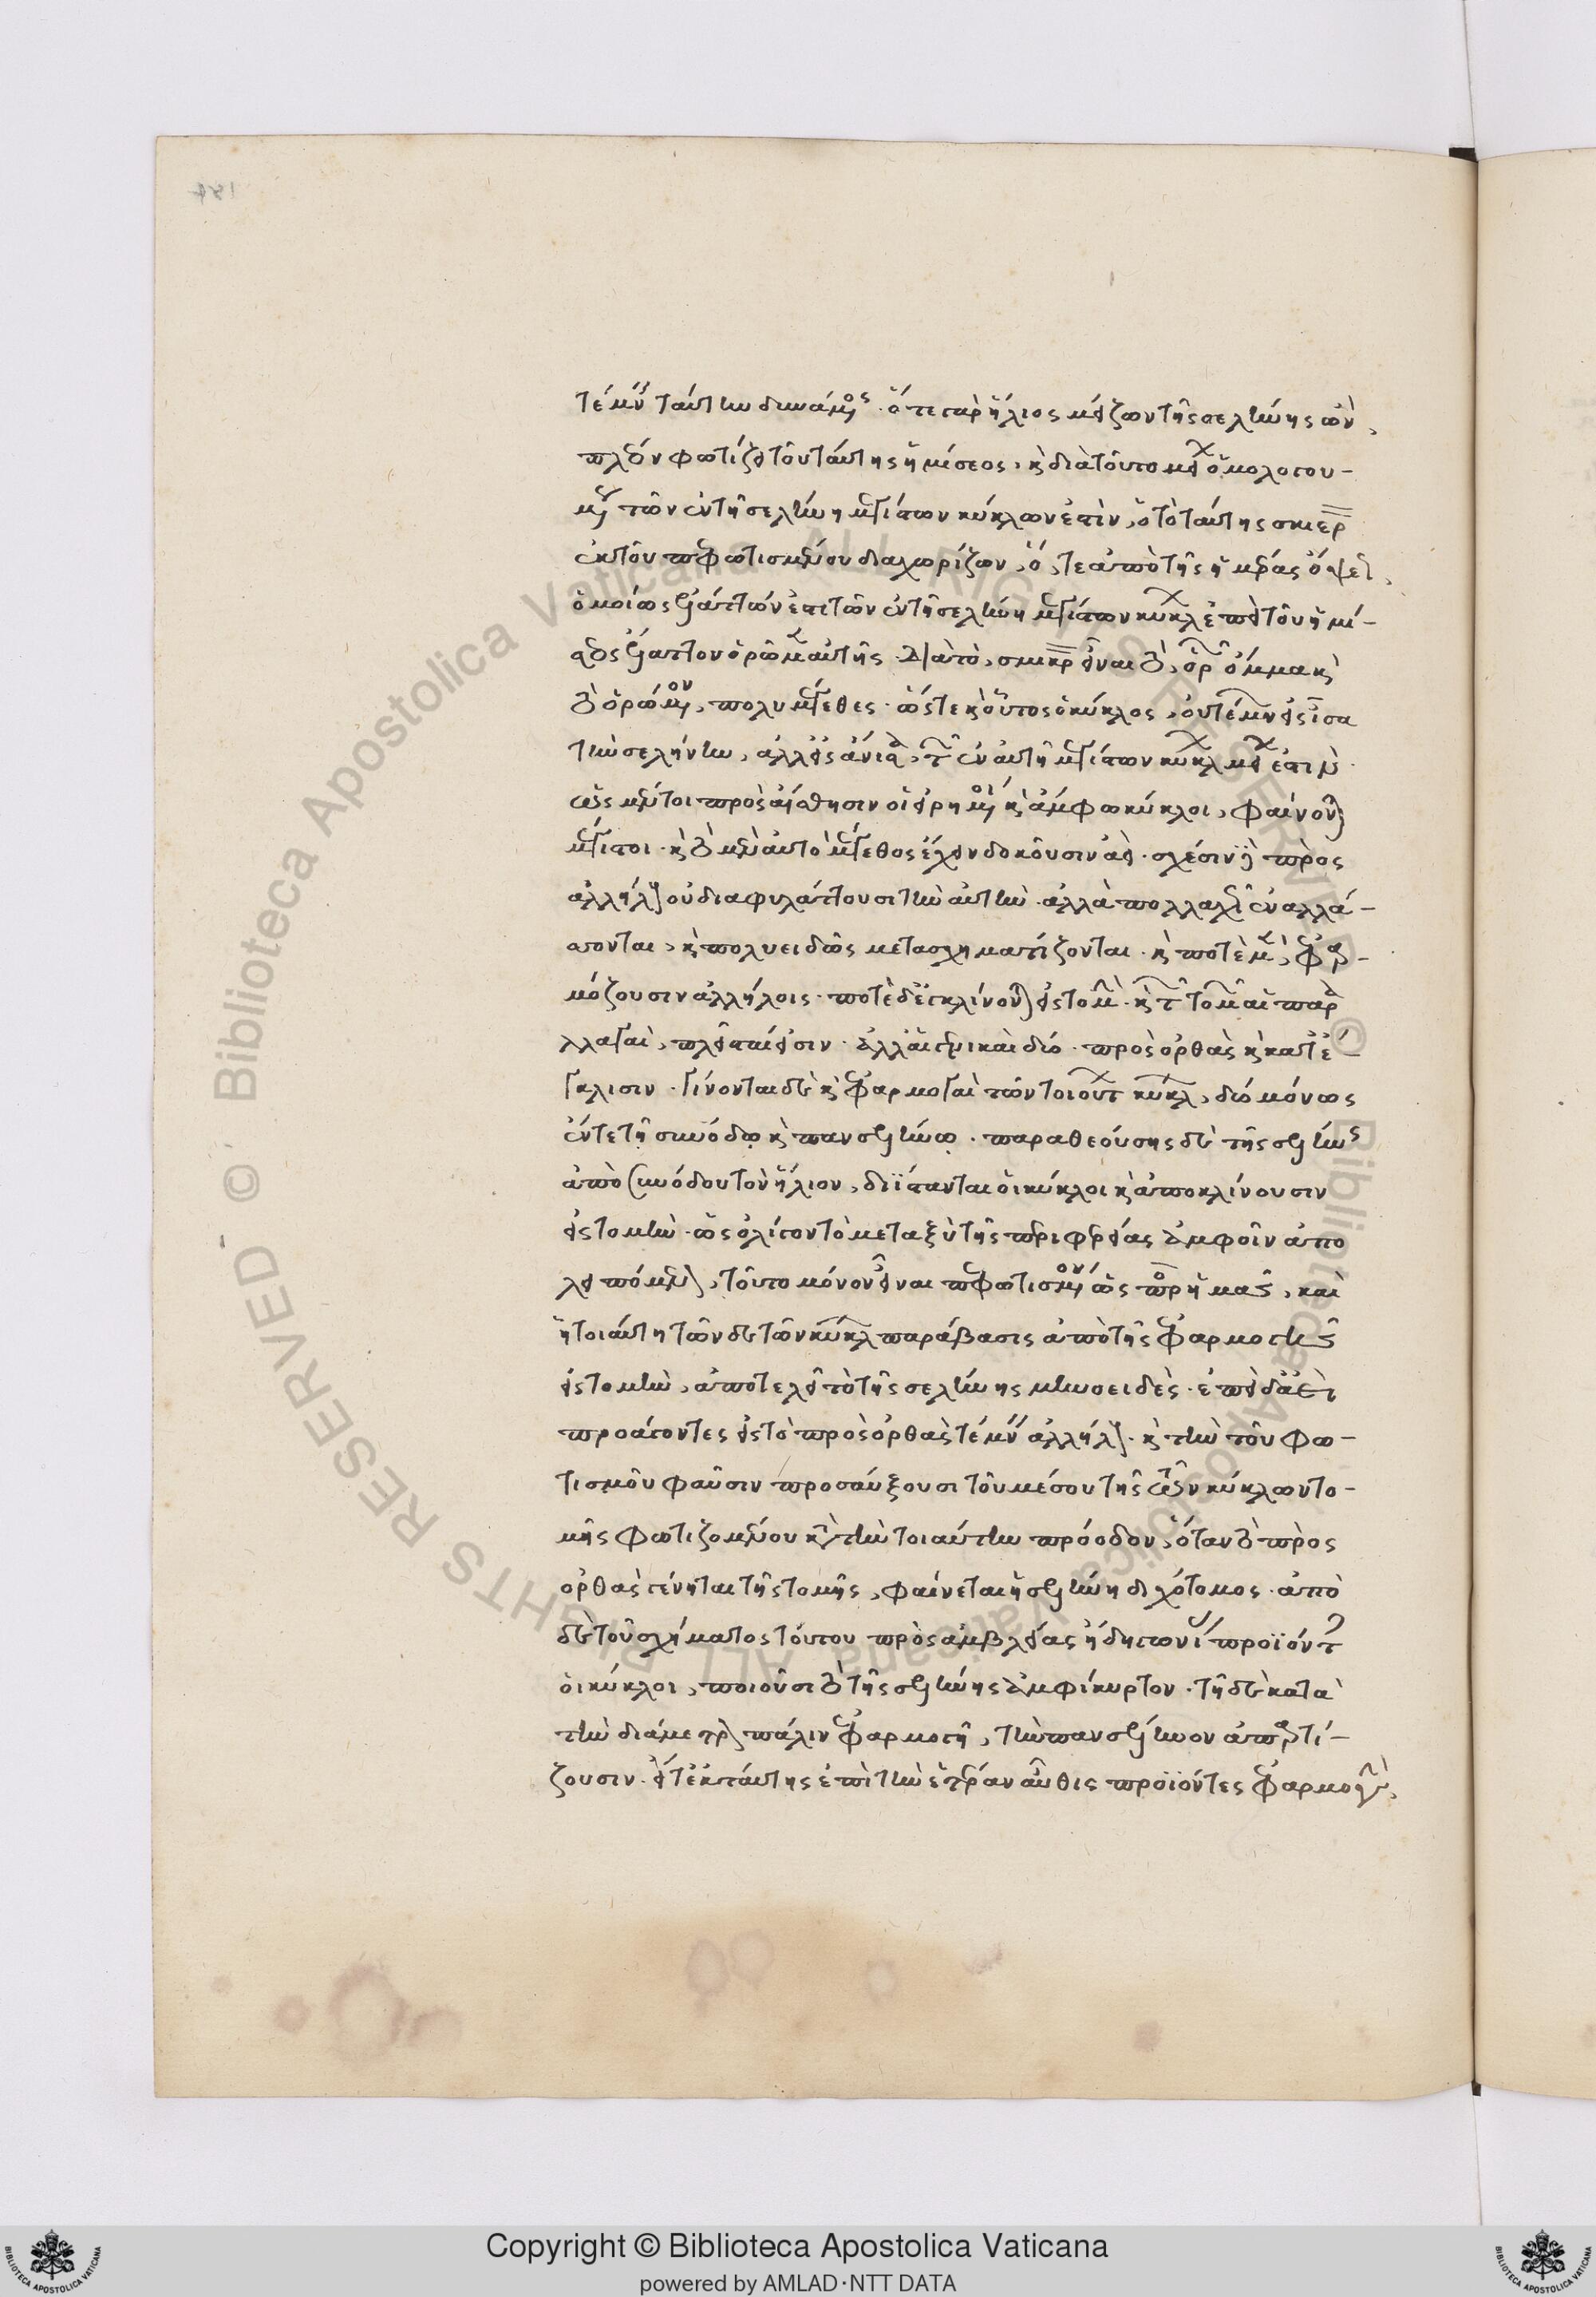 τέμνειν ταύτην δυνάμενος. ὅτι γὰρ ἥλιος μείζων τῆς σελήνης ὢν,
πλέον φωτίζει τοῦ ταύτης ἡμίσεος. καὶ διὰ τοῦτο μείζων ὁμολογου-
μένως τῶν ἐν τῇ σελήνῃ μεγίστων κύκλων ἐστὶν, ὁ τὸ ταύτης σκιερὸν
ἐκ τοῦ πεφωτισμένου διαχωρίζων, ὅ, τε ἀπὸ τῆς ἡμετέρας ὄψεως,
ὁμοίως ἐλάττων ἐστὶ τῶν ἐν τῇ σελήνῃ μεγίστων κύκλων ἐπεὶ τοῦ ἡμί-
σεος ἔλαττον ὁρῶμεν αὐτῆς. διὰ τὸ, σμικρὸν εἶναι τὸ, ὁρῶν ὄμμα καὶ
τὸ ὁρώμενον, πολυμέγεθες. ὥστε καὶ οὗτος ὁ κύκλος, οὐ τέμνει εἰς ἴσα
τὴν σελήνην, ἀλλ' εἰς ἄνισα, τῶν ἐν αὐτῇ μεγίστων κύκλων μείζων ἐστὶ μὴ.
ὡς μέντοι πρὸς αἴσθησιν οἱ εἰρημένοι καὶ ἄμφω κύκλοι, φαίνονται
μέγιστοι. καὶ τὸ μὲν αὐτὸ μέγεθος ἔχειν δοκοῦσιν ἀεὶ. σχέσιν γε πρὸς
ἀλλήλους οὐ διαφυλάττουσι τὴν αὐτὴν. ἀλλὰ πολλαχῶς ἐναλλά-
σσονται, καὶ πολυειδῶς μετασχηματίζονται. καὶ ποτὲ μὲν, ἐφαρ-
μόζουσιν ἀλλήλοις. ποτὲ δὲ ἐγκλίνονται εἰς τομὴν. καὶ τῶν τομῶν αἱ παρα
λλαγαὶ, πλεῖσταί εἰσιν. ἀλλ' αἱ γενικαὶ δύο. πρὸς ὀρθὰς καὶ κατ' ἔ-
γκλισιν. γίνονται δὲ καὶ ἐφαρμογαὶ τῶν τοιούτων κύκλων, δύο μόνως
ἔν τε τῇ συνόδῳ καὶ πανσελήνῳ. παραθεούσης δὲ τῆς σελήνης
ἀπὸ συνόδου τὸν ἥλιον, διΐστανται οἱ κύκλοι καὶ ἀποκλίνουσιν
εἰς τομὴν. ὡς ὀλίγον τὸ μεταξὺ τῆς περιφερείας ἀμφοῖν ἀπο
λειπόμενον, τοῦτο μόνον εἶναι πεφωτισμένον ὡς πρὸς ἡμᾶς, καὶ
ἡ τοιαύτη τῶνδε τῶν κύκλων παράβασις ἀπὸ τῆς ἐφαρμογῆς
εἰς τομὴν, ἀποτελεῖ τὸ τῆς σελήνης μηνοειδὲς. ἐπεὶ δ' ἀεὶ
προάγοντες εἰς τὸ πρὸς ὀρθὰς τέμνειν ἀλλήλους. καὶ τὴν τοῦ φω-
τισμοῦ φαῦσιν προσαύξουσι τοῦ μέσου τῆς τῶν κύκλων το-
μῆς φωτιζομένου κατὰ τὴν τοιαύτην πρόοδον, ὅταν τὸ πρὸς
ὀρθὰς γένηται τῆς τομῆς, φαίνεται ἡ σελήνη διχότομος. ἀπὸ
δὲ τοῦ σχήματος τούτου πρὸς ἀμβλείας ἤδη γωνίας προϊόντες
οἱ κύκλοι, ποιοῦσι τὸ τῆς σελήνης ἀμφίκυρτον. τῇ δὲ κατὰ
τὴν διάμετρον πάλιν ἐφαρμογῇ, τὴν πανσέληνον ἀπαρτί-
ζουσιν. εἶτ' ἐκ ταύτης ἐπὶ τὴν ἑτέραν αὖθις προϊόντες ἐφαρμογὴν,
Copyright © Biblioteca Apostolica Vaticana
powered by AMLAD·NTT DATA